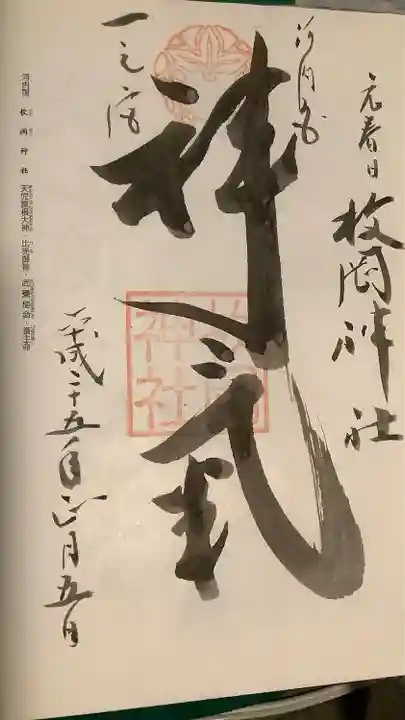 元春日
枚岡神社
河内国
一之宮
神氣
枚岡神社
平成二十五年正月五日
河内国 枚岡神社 天児屋根大神 比売御神 経津主命